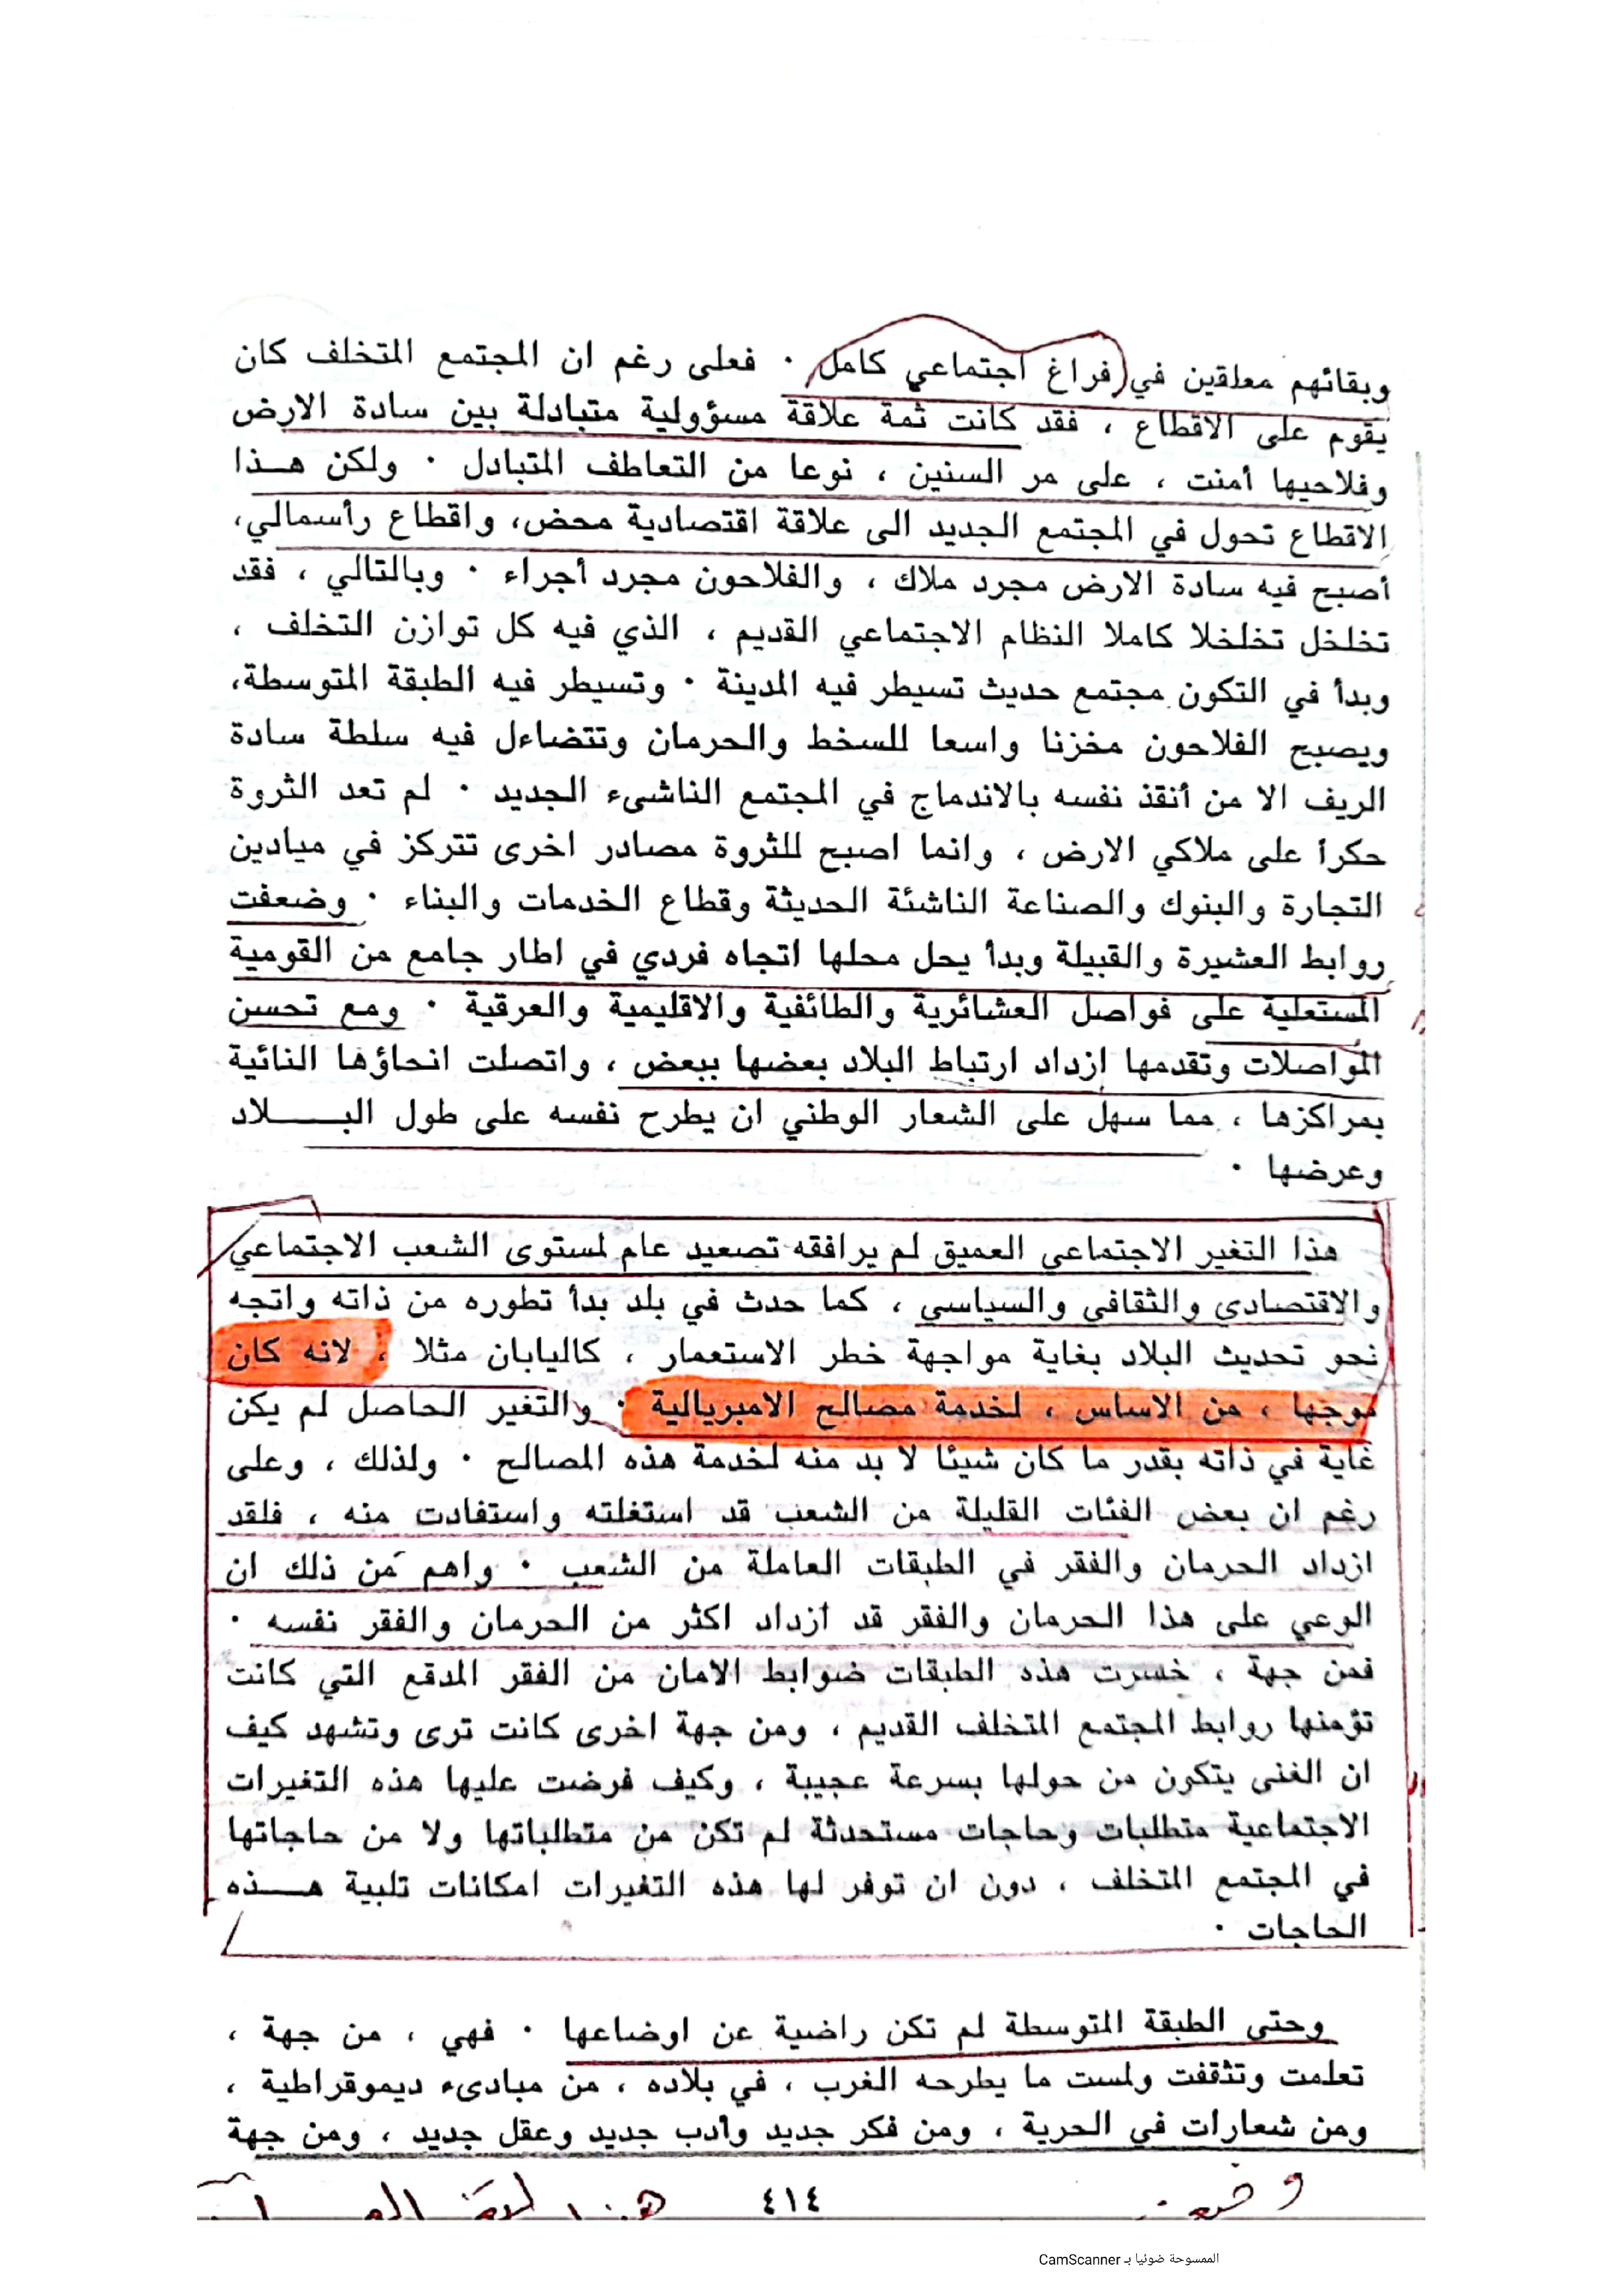 وبقائهم معلقين في فراغ اجتماعي كامل · فعلى رغم ان المجتمع المتخلف كان
يقوم على الاقطاع ، فقد كانت ثمة علاقة مسؤولية متبادلة بين سادة الارض
وفلاحيها أمنت ، على مر السنين ، نوعا من التعاطف المتبادل · ولكن هـــذا
الاقطاع تحول في المجتمع الجديد الى علاقة اقتصادية محض، واقطاع رأسمالي،
أصبح فيه سادة الارض مجرد ملاك ، والفلاحون مجرد أجراء · وبالتالي ، فقد
تخلخل تخلخلا كاملا النظام الاجتماعي القديم ، الذي فيه كل توازن التخلف ،
وبدأ في التكون مجتمع حديث تسيطر فيه المدينة · وتسيطر فيه الطبقة المتوسطة،
ويصبح الفلاحون مخزنا واسعا للسخط والحرمان وتتضاءل فيه سلطة سادة
الريف الا من أنقذ نفسه بالاندماج في المجتمع الناشىء الجديد · لم تعد الثروة
حكرأ على ملاكي الارض ، وانما اصبح للثروة مصادر اخرى تتركز في ميادين
التجارة والبنوك والصناعة الناشئة الحديثة وقطاع الخدمات والبناء · وضعفت
روابط العشيرة والقبيلة وبدأ يحل محلها اتجاه فردي في اطار جامع من القومية
المستعلية على فواصل العشائرية والطائفية والاقليمية والعرقية · ومع تحسن
المواصلات وتقدمها إزداد ارتباط البلاد بعضها ببعض ، واتصلت انحاؤها النائية
بمراكزها ، مما سهل على الشعار الوطني ان يطرح نفسه على طول البـــــلاد
وعرضها ·
هذا التغير الاجتماعي العميق لم يرافقه تصعيد عام لمستوى الشعب الاجتماعي
والاقتصادي والثقافي والسياسي ، كما حدث في بلد بدأ تطوره من ذاته واتجه
نحو تحديث البلاد بغاية مواجهة خطر الاستعمار ، كاليابان مثلا ، لانه كان
موجها ، من الاساس ، لخدمة مصالح الامبريالية · والتغير الحاصل لم يكن
غاية في ذاته بقدر ما كان شيئا لا بد منه لخدمة هذه المصالح · ولذلك ، وعلى
رغم ان بعض الفئات القليلة من الشعب قد استغلته واستفادت منه ، فلقد
ازداد الحرمان والفقر في الطبقات العاملة من الشعب · واهم من ذلك ان
الوعي على هذا الحرمان والفقر قد ازداد اكثر من الحرمان والفقر نفسه ·
فمن جهة ، خسرت هذه الطبقات ضوابط الامان من الفقر المدقع التي كانت
تؤمنها روابط المجتمع المتخلف القديم ، ومن جهة اخرى كانت ترى وتشهد كيف
ان الغنى يتكون من حولها بسرعة عجيبة ، وكيف فرضت عليها هذه التغيرات
الاجتماعية متطلبات وحاجات مستحدثة لم تكن من متطلباتها ولا من حاجاتها
في المجتمع المتخلف ، دون ان توفر لها هذه التغيرات امكانات تلبية هـــذه
الحاجات ·
وحتى الطبقة المتوسطة لم تكن راضية عن اوضاعها · فهي ، من جهة ،
تعلمت وتثقفت ولمست ما يطرحه الغرب ، في بلاده ، من مبادىء ديموقراطية ،
ومن شعارات في الحرية ، ومن فكر جديد وأدب جديد وعقل جديد ، ومن جهة
٤١٤
الممسوحة ضوئيا بـ CamScanner